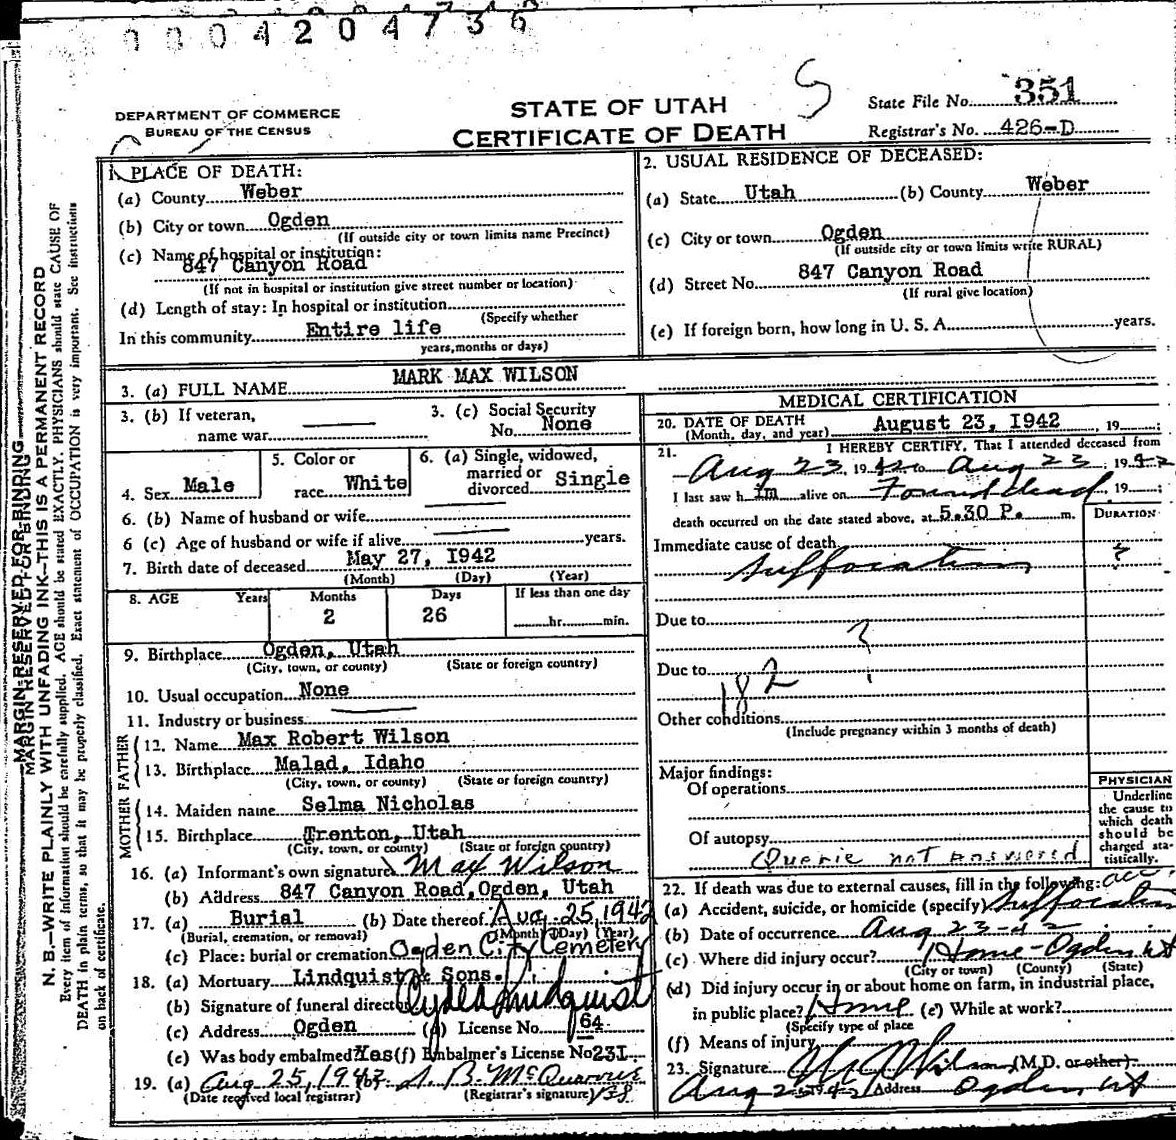 0004204736
DEPARTMENT OF COMMERCE
BUREAU OF THE CENSUS
STATE OF UTAH
CERTIFICATE OF DEATH
State File No. 351
Registrar's No. 426-D
1. PLACE OF DEATH:
(a) County Weber
(b) City or town Ogden
(If outside city or town limits name Precinct)
(c) Name of hospital or institution:
847 Canyon Road
(If not in hospital or institution give street number or location)
(d) Length of stay: In hospital or institution
(Specify whether
In this community Entire life
years, months or days)
2. USUAL RESIDENCE OF DECEASED:
(a) State Utah (b) County Weber
(c) City or town Ogden
(If outside city or town limits write RURAL)
(d) Street No. 847 Canyon Road
(If rural give location)
(e) If foreign born, how long in U. S. A. years.
3. (a) FULL NAME MARK MAX WILSON
3. (b) If veteran,
name war
3. (c) Social Security
No. None
4. Sex Male
5. Color or
race White
6. (a) Single, widowed,
married or
divorced Single
6. (b) Name of husband or wife
6 (c) Age of husband or wife if alive years.
7. Birth date of deceased May 27, 1942
(Month) (Day) (Year)
8. AGE Years Months Days If less than one day
2 26 hr. min.
9. Birthplace Ogden, Utah
(City, town, or county) (State or foreign country)
10. Usual occupation None
11. Industry or business
FATHER
12. Name Max Robert Wilson
13. Birthplace Malad, Idaho
(City, town, or county) (State or foreign country)
MOTHER
14. Maiden name Selma Nicholas
15. Birthplace Trenton, Utah
(City, town, or county) (State or foreign country)
16. (a) Informant's own signature Max Wilson
(b) Address 847 Canyon Road, Ogden, Utah
17. (a) Burial (b) Date thereof Aug. 25, 1942
(Burial, cremation, or removal) (Month) (Day) (Year)
(c) Place: burial or cremation Ogden City Cemetery
18. (a) Mortuary Lindquist & Sons.
(b) Signature of funeral director Clyde Lindquist
(c) Address Ogden (d) License No. 64
(e) Was body embalmed? Yes (f) Embalmer's License No. 231
19. (a) Aug 25, 1942 (b) A. B. McQuarrie
(Date received local registrar) (Registrar's signature)
MEDICAL CERTIFICATION
20. DATE OF DEATH
(Month, day, and year) August 23, 1942, 19
21. I HEREBY CERTIFY, That I attended deceased from
Aug 23, 1942 to Aug 23, 1942
I last saw him alive on Found dead, 19
death occurred on the date stated above, at 5.30 P. m.
DURATION
Immediate cause of death
Suffocation ?
Due to
?
Due to
182
Other conditions
(Include pregnancy within 3 months of death)
Major findings:
Of operations
Of autopsy
Querie not answered
PHYSICIAN
Underline
the cause to
which death
should be
charged sta-
tistically.
22. If death was due to external causes, fill in the following: acc.
(a) Accident, suicide, or homicide (specify) Suffocation
(b) Date of occurrence Aug 23-42
(c) Where did injury occur? Home - Ogden Ut
(City or town) (County) (State)
(d) Did injury occur in or about home on farm, in industrial place,
in public place? Home (e) While at work?
(Specify type of place
(f) Means of injury
23. Signature Wilson (M.D. or other)
Aug 25 1942 Address Ogden, Ut
MARGIN RESERVED FOR BINDING
N. B.—WRITE PLAINLY WITH UNFADING INK—THIS IS A PERMANENT RECORD
Every item of information should be carefully supplied. AGE should be stated EXACTLY. PHYSICIANS should state CAUSE OF
DEATH in plain terms, so that it may be properly classified. Exact statement of OCCUPATION is very important. See instructions
on back of certificate.